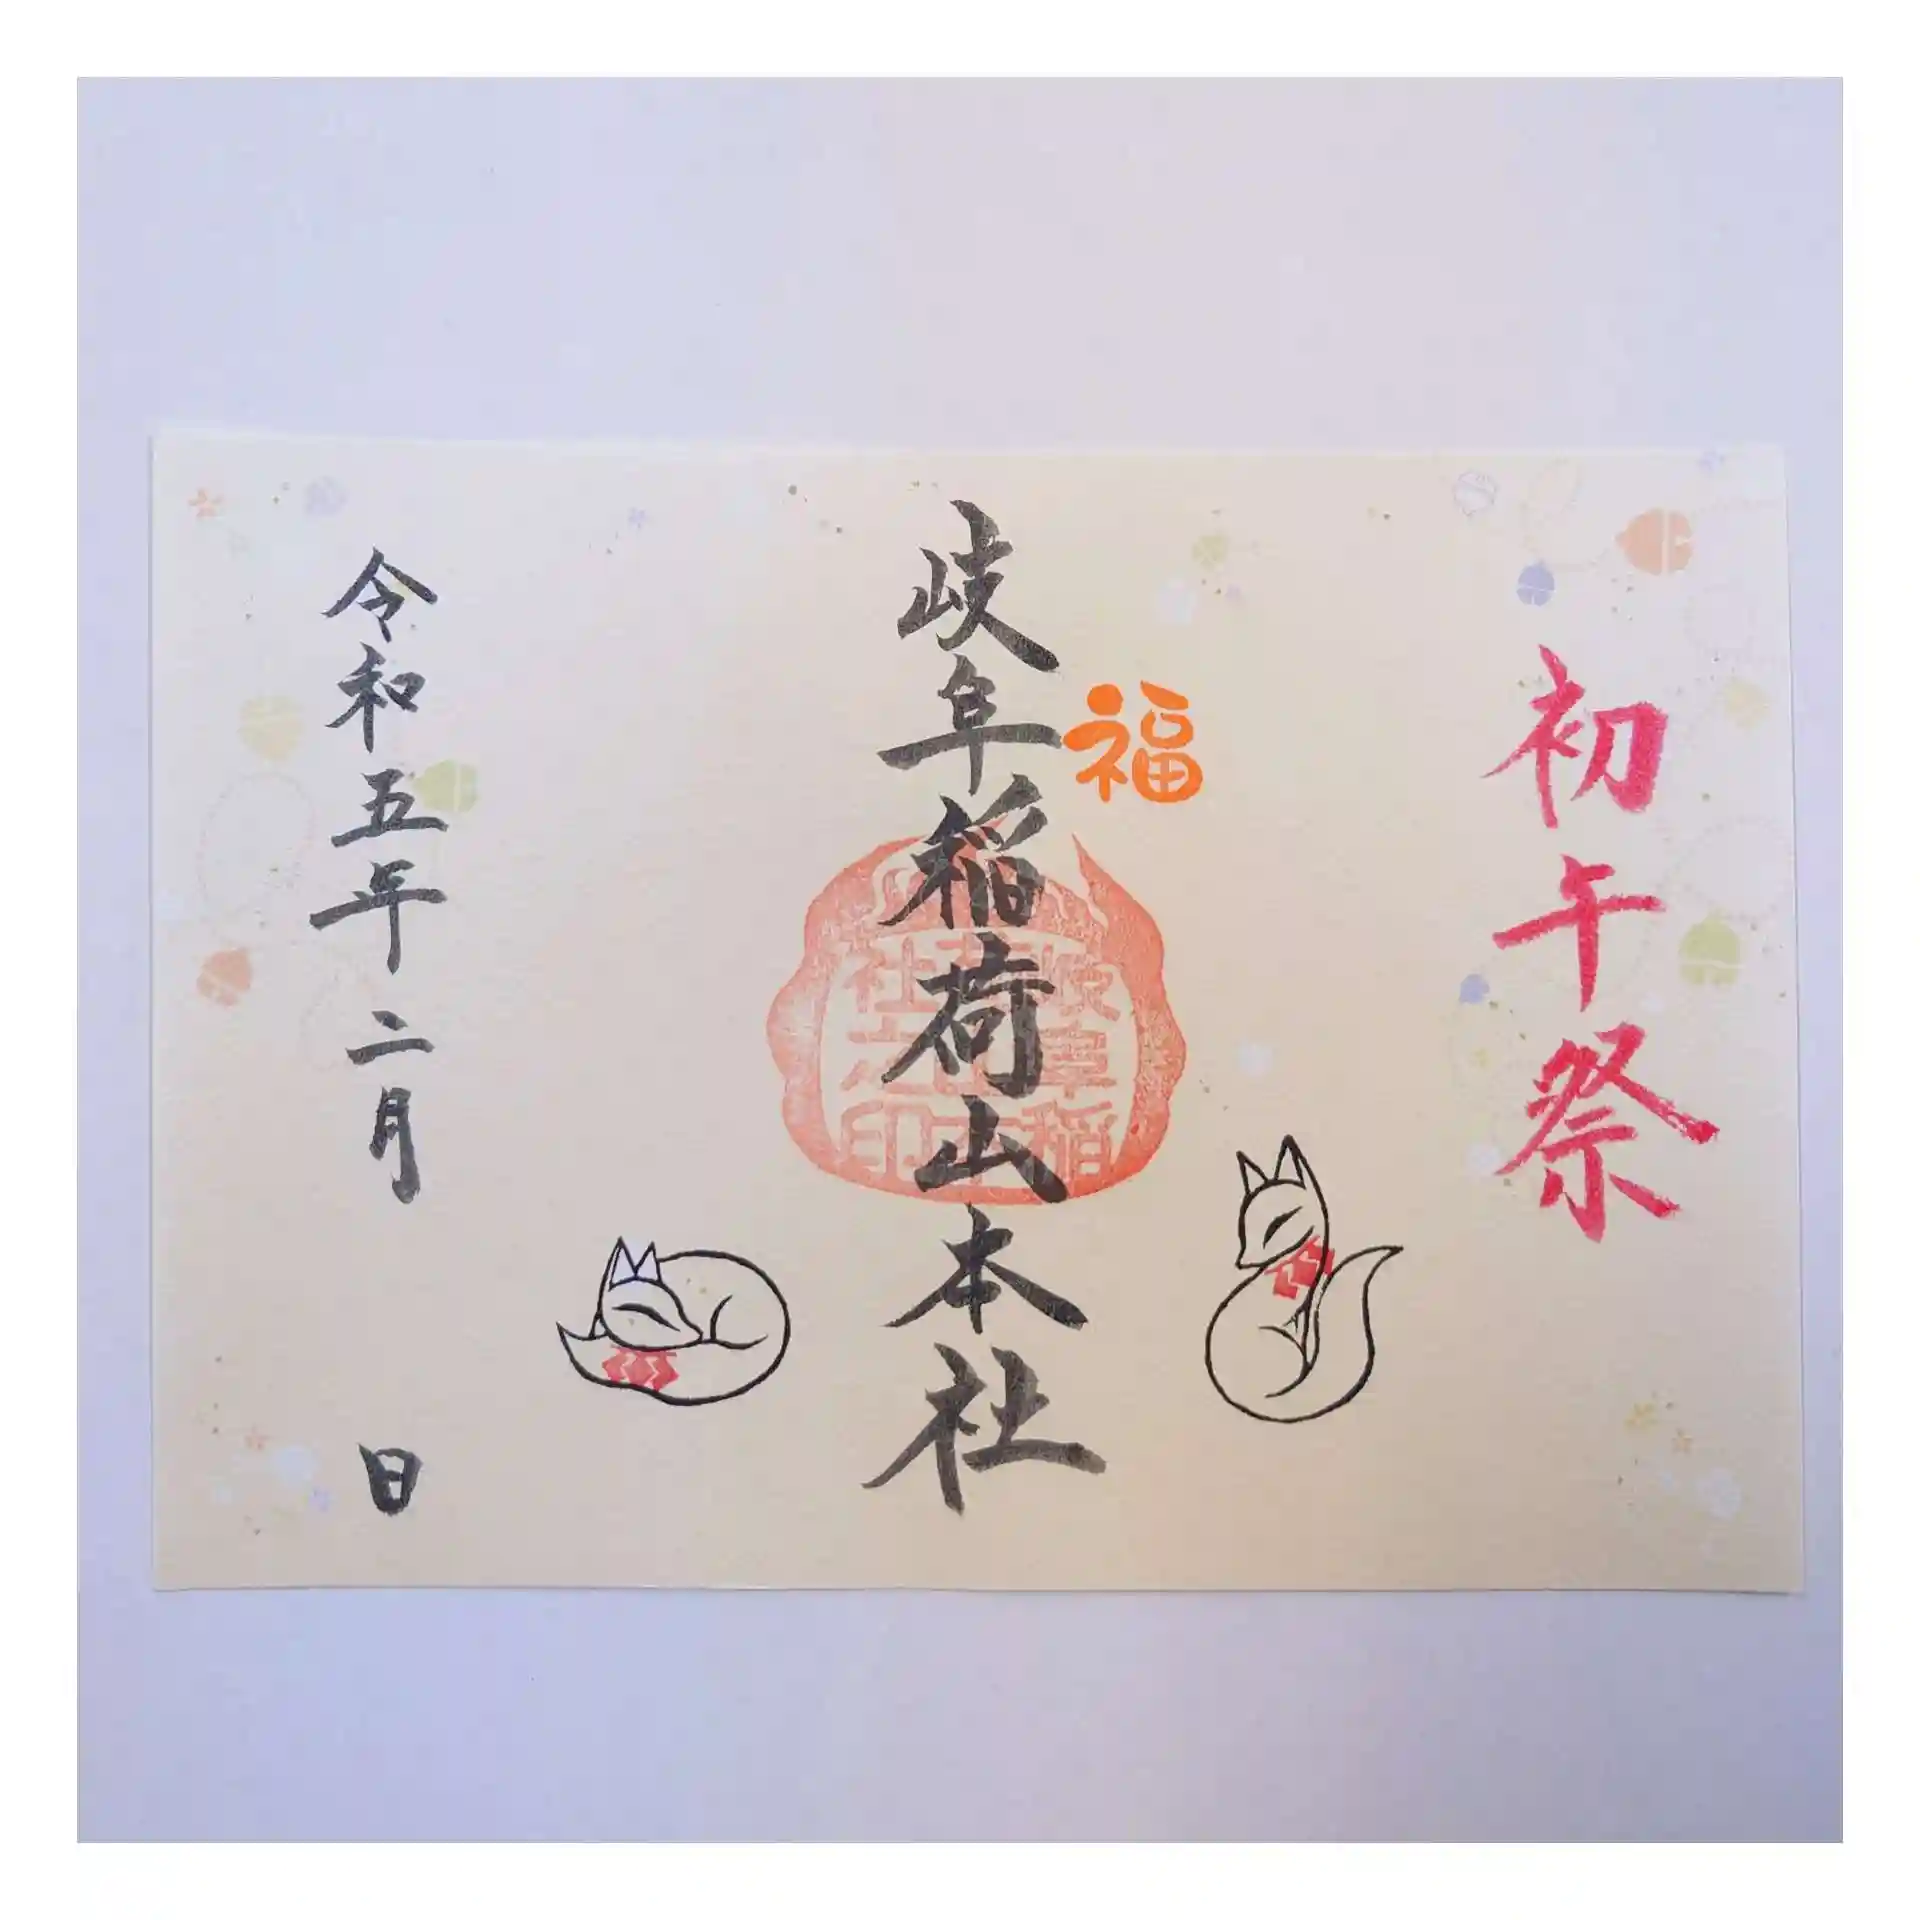 初午祭
福
岐阜稲荷山本社
岐阜稲
社之印
令和五年二月 日